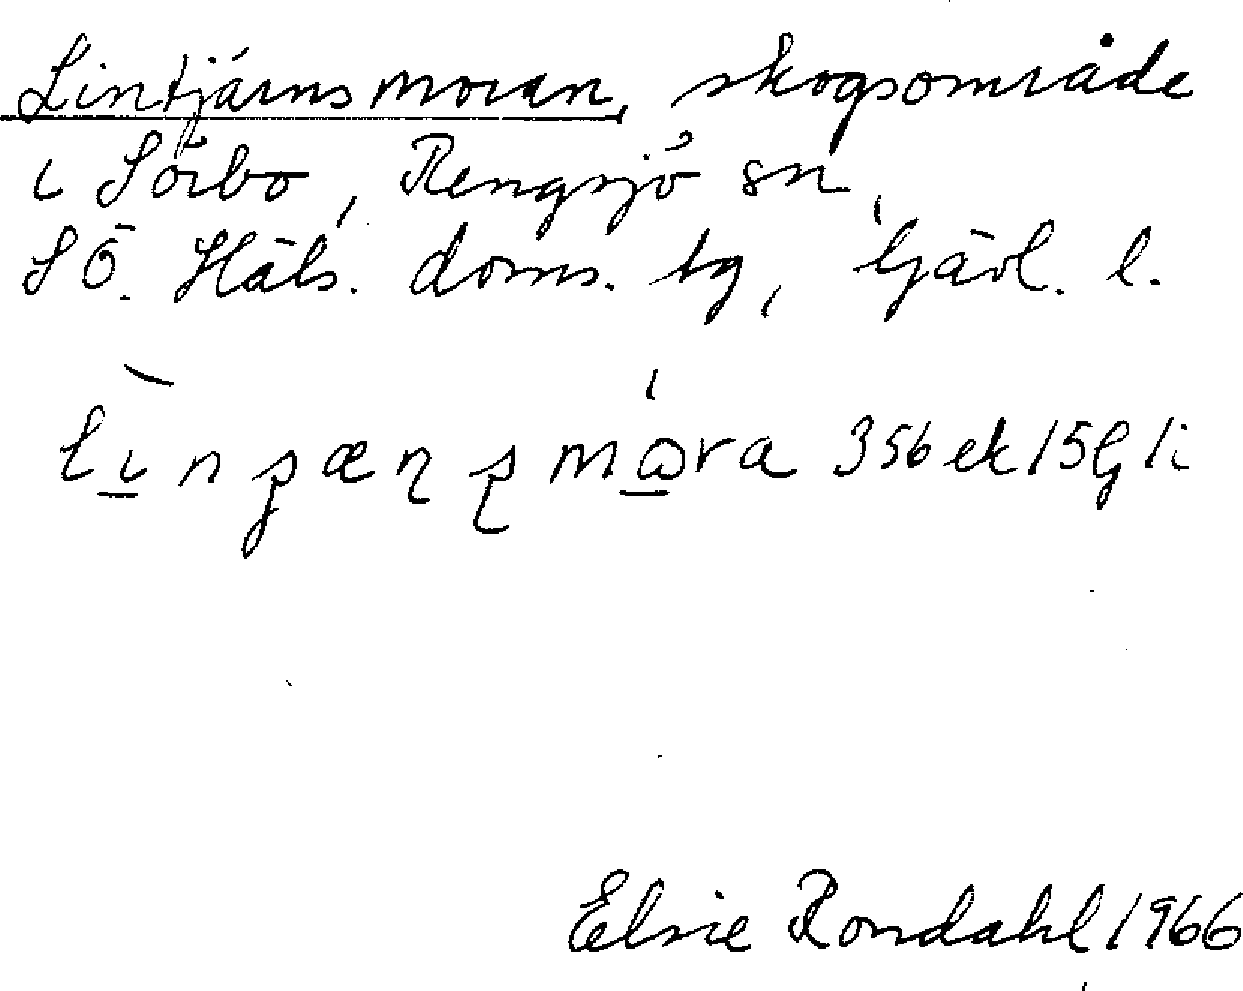 Lintjärnsmoran, skogsområde
i Sörbo, Rengsjö sn,
SÖ. Häls. doms. tg, Gävl. l.
356 ek 15 G li
Elsie Rondahl 1966